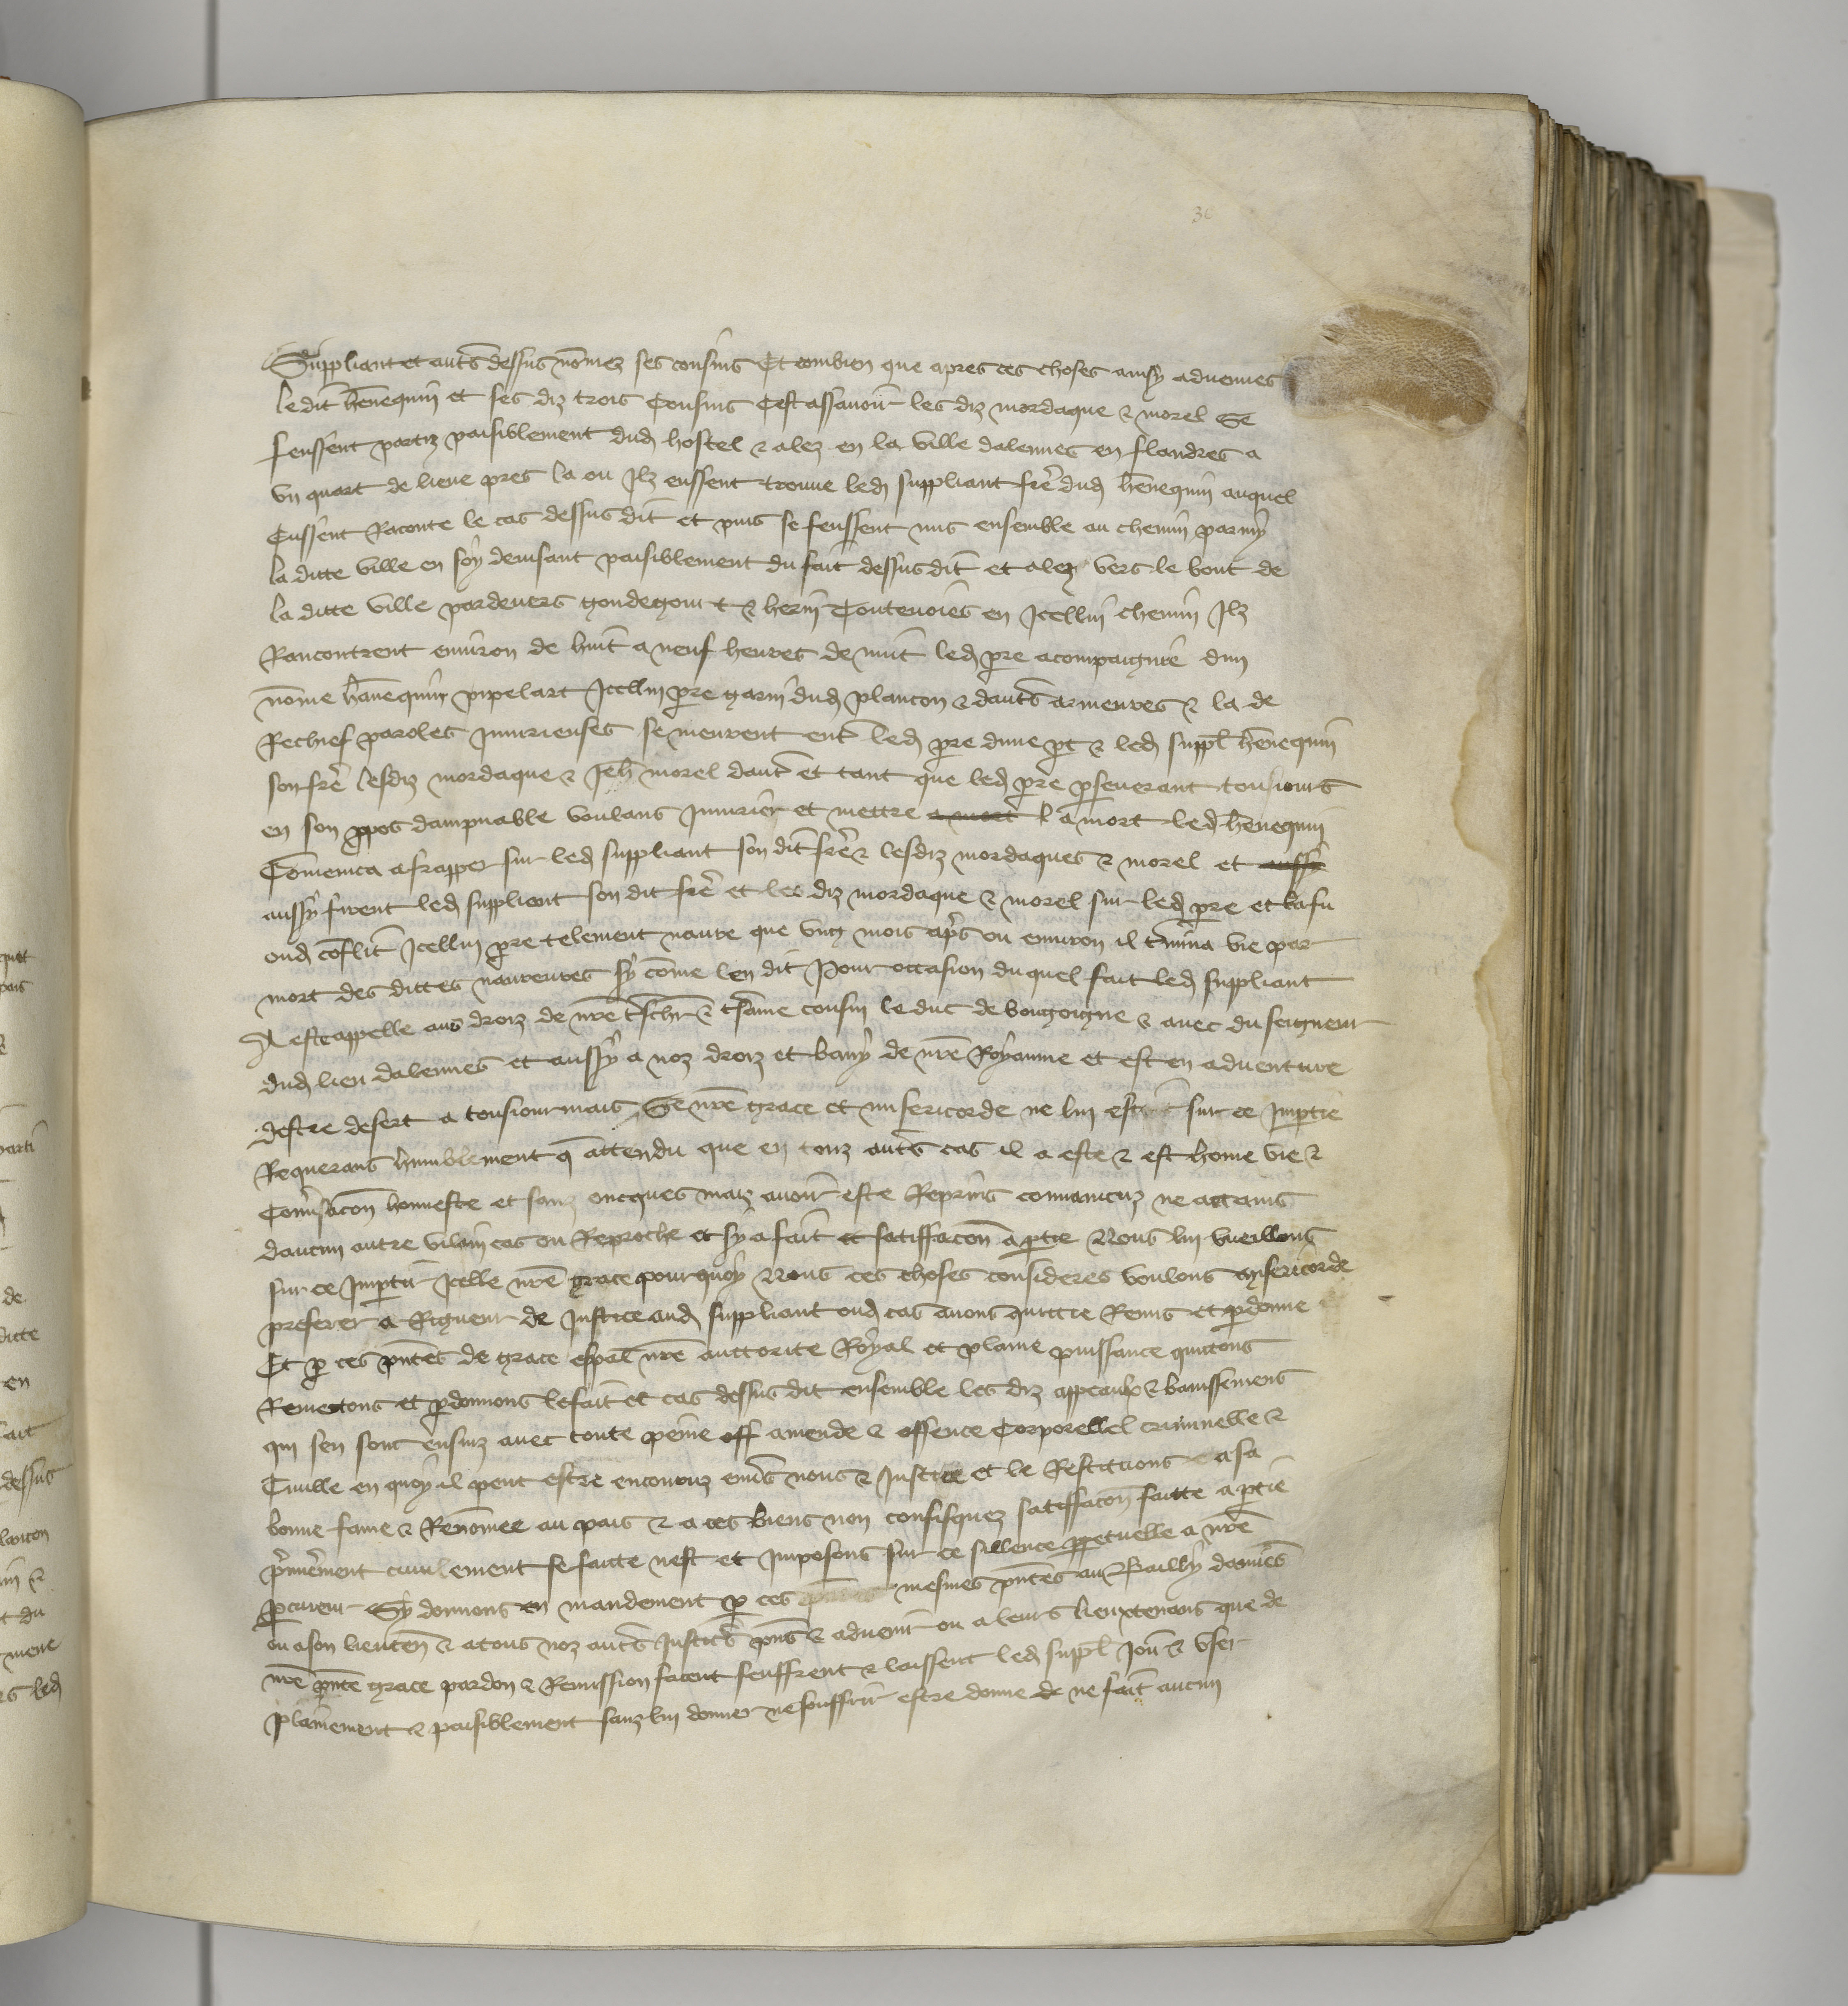 30
Suppliant et aut̃s dessus nõmez ses cousins Et combien que apres ces choses ainsy aduenues
le dit hẽnequin et ses diz trois Cousins Cest assauoir les diz mordaque & morel Se
feussent partiz paisiblement dud hostel & alez en la ville dalennes en flandres a
vn quart de lieue pres la ou Ilz eussent trouue led suppliant fre dud hẽnequin auquel
Eussent Raconte le cas dessus dit et puis se feussent mis ensemble au chemin parmy
la ditte ville en soy deuisant paisiblement du fait dessus dit et alez vers le bout de
la ditte ville pardeuers gondegout & herin Toutenoies en Icellui chemin Ilz
Rancontrent enuiron de huit a neuf heures de nuit led pre acompaignie dun
nõme hãnequin pipelart Icellui pre garni dud plancon & daut̃s armeures & la de
Rechief paroles Iniurieuses se meurent ent̃ led pre dune pt & led suppl hẽnequin
son fre lesdiz mordaque & Jeh morel daut̃ et tant que led pre pseuerant tousiours
en son ppos dampnable voulans Iniurier et mettre a mort l a mort led hẽnequin
Cõmenca a frapper sur led suppliant son dit fre & lesdiz mordaques & morel et aussy
aussy firent led suppliant son dit fre et les diz mordaque & morel sur led pre et la fu
oud cõflit Icellui pre telement naure que vng mois ap̃s ou enuiron il t̃mina vie par
mort des dittes naureures sy cõme len dit Pour occasion duquel fait led suppliant
A este appelle aus droiz de nre t̃schr & t̃same cousin le duc de bourgoigne & auec du seigneur
dud lieu dalennes et aussy a noz droiz et bany de nre Royaume et est en aduenture
destre desert a tousiourmais Se nre grace et misericorde ne lui est sur ce Imptie
Requerans humblement q̃ attendu que en touz aut̃s cas il a este & est home vie &
Conu̾sacõn honneste et sanz oncques maiz auoir este Reprins conuaincuz ne attains
daucun autre vilain cas ou Reproche et sy a fait et satiffacõn a ptie Nous lui vueillons
sur ce Imptir Icelle nre grace pourquoy Nous ces choses consideres voulons misericorde
preferer a Rigueur de Justice aud suppliant oud cas auons quittie Remis et pdonne
Et p ces pñtes de grace espal nre auctorite Royal et plaine puissance quittons
Remettons et pdonnons le fait et cas dessus dit ensemble les diz appeaulx & banissemens
qui sen sont ensuiz auec toute peine off amende & offence Corporellel criminelle &
Ciuille en quoy il peut estre encouruz enu̾s nous & Justice et le Restituons a sa
bonne fame & Renõmee au pais & a ces biens non confisquez satiffacõn faitte a ptie
p̃mierement ciuilement se faitte nest et Imposons sur ce sillence ppetuelle a nre
pcureur Sy donnons en mandement p ces mesmes pñtes au Bailly damiẽs
ou a son lieuteñ & a tous noz aut̃s Justic̃s pñs & aduenir ou a leurs lieuxtenans que de
nre pñte grace pardon & Remission facent seuffrent & laissent led suppl Joir & vser
plainement & paisiblement sanz lui donner ne souffrir estre donne de ne fait aucun